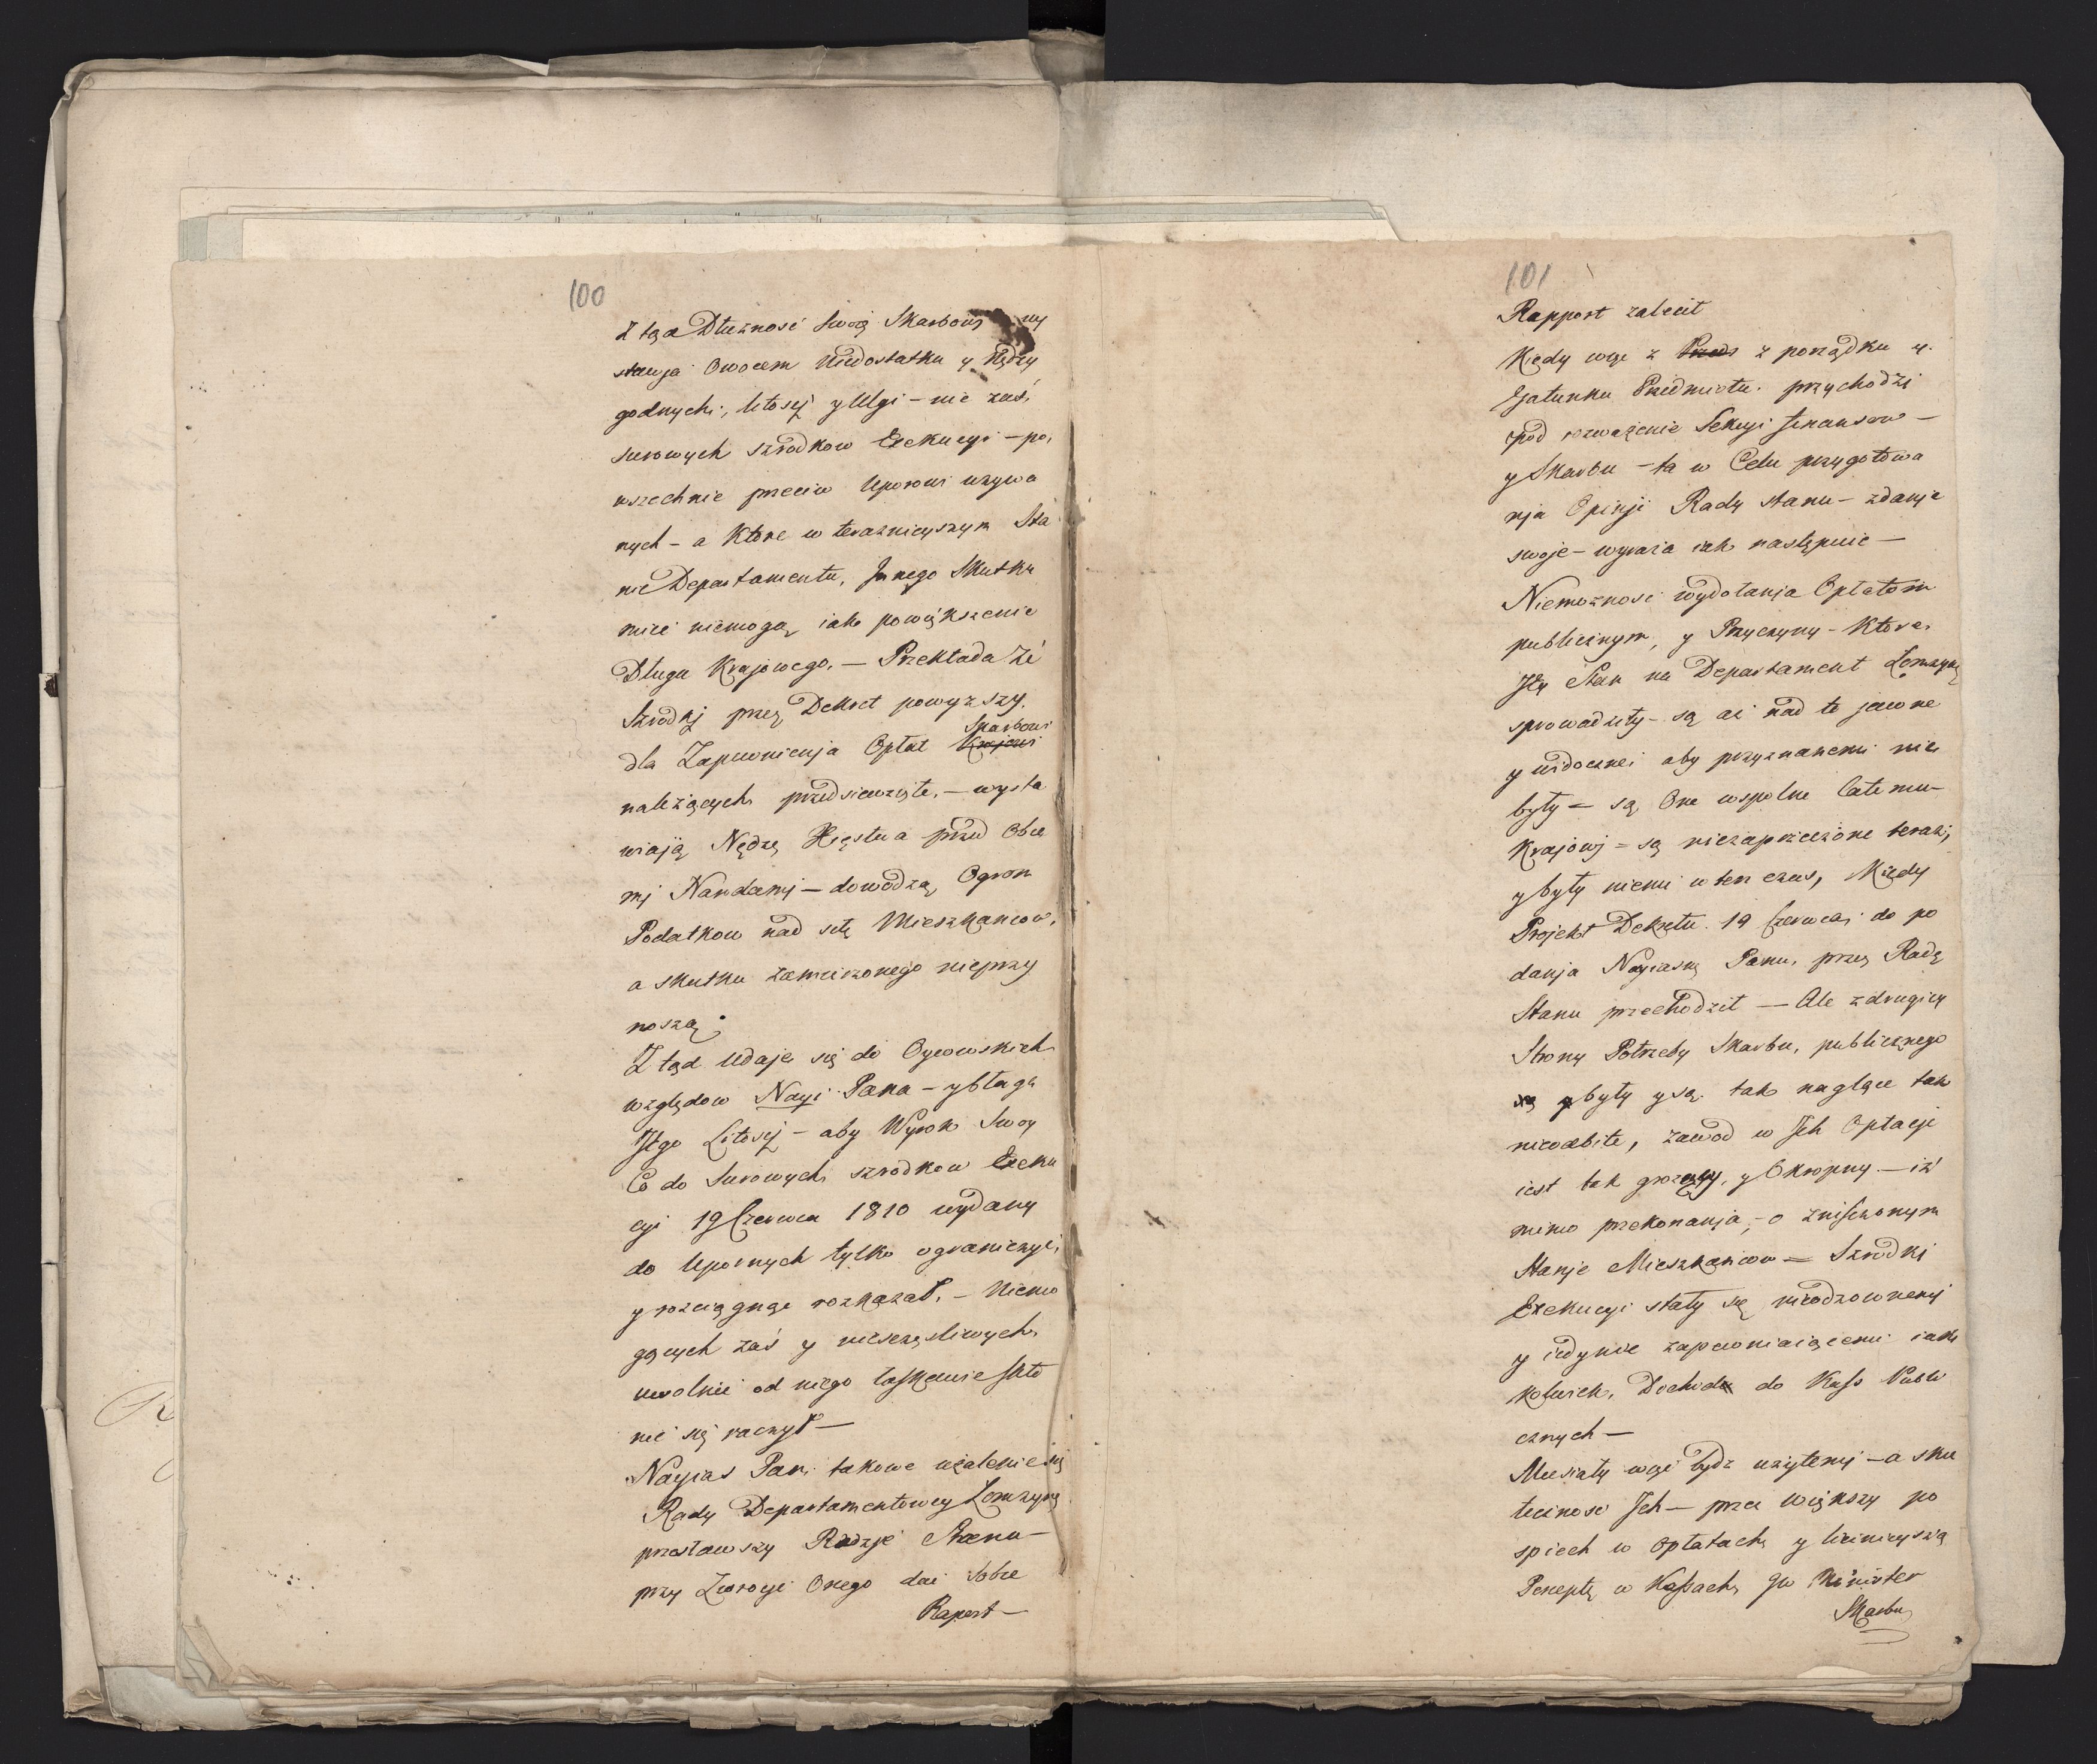 100
Z tąd Dłużność swoię Skarbowi wy
stawja Owocem Niedostatku y Nędzy
godnych, litosci y Ulgi – nie zaś,
surowych szrodkow Exekucyi – po,
wszechnie przeciw Uporowi uzywa
nych – a Ktore w teraznieyszym Sta
nie Departamentu, Innego Skutku
miec niemogą iak powiększenie
Długu Krajowego. – Przekłada że
Szrodkj przez Dekret powyższy.
Skarbowi
dla Zapewnienja Opłat Krajowi
należących przedsiewzięte, – wysta
wiają Nędzę Xięstwa przed Obce
mj Narodamj – dowodzą Ogrom
Podatkow nad siłę Mieszkancow,
a skutku zamierzonego nieprzy
noszą.
Z tąd udaje się do Oycowskich
względow Nayj Pana – y błaga
Jego Litosej – aby Wyrok Swoy
Co do Surowych szrodkow Exeku
cyi 19 Czerwca 1810 wydany
do Upornych tylko ograniczyć,
y rozciągnąć rozkazał. – Niemo
gących zaś y niesczęsliwych
uwolnić od niego łaskawie skło
nić się raczył –
Nayias Pan. takowe użalenie się
Rady Departamentowey Łomzyns
przesławszy Radzje Stanu –
przy Zwrocje Onego dać sobie
Raport –
101
Rapport zalecił
Kiedy więc z Przed z porządku y.
Gatunku Przedmiotu. przychodzi
pod rozważenie Sekcyi finansow –
y Skarbu – ta w Celu przygotowa
nja Opinji Rady Stanu – zdanje
swoje – wyraża iak następuie –
Niemożnosc wydołanja Opłatom
publicznym, y Przyczyny – Ktore
Zły Stan na Departament Łomzyns
sprowadziły – są aż nad to jawne
y widoczne, aby przyznanemi nie
były = są One wspolne Całemu –
Krajowj = są niezaprzeczone teraz,
y były niemi w ten czas, Kiedy
Projekt Dekretu 19 Czerwca, do po
danja Nayiasnę Panu, przez Radę
Stanu przechodził — Ale z drugiey
Strony Potrzeby Skarbu, publicznego
są y były y są tak naglące tak
nieodbite, zawod w Ich Opłacje
iest tak grozący, y Okropny. – iż
mimo przekonanja, – o zniszczonym
Stanje Mieszkancow = Szrodkj
Exekucyi stały się nieodzownemj
y iedynie zapewniaiącemi iaki
kolwiek, Dochod do Kass Publi
cznych —
Musiały więc bydz użytemj – a sku
teczność Ich – przez większy po
spiech w Opłatach y licznieyszą
Perceptę w Kassach JW Minister
Skarbu